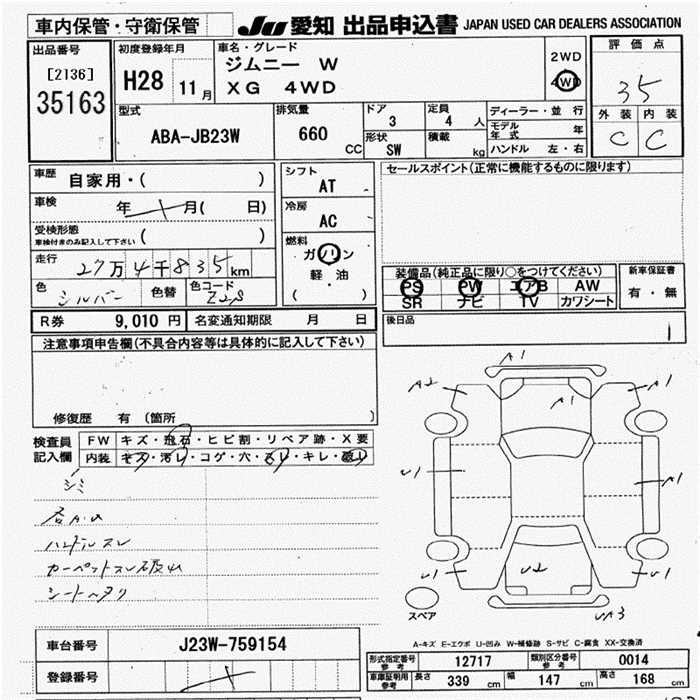 車内保管・守衛保管
JU 愛知 出品申込書 JAPAN USED CAR DEALERS ASSOCIATION
出品番号
[2136]
35163
初度登録年月
H28 11月
車名・グレード
ジムニー W
XG 4WD
2WD
4WD
評価点
35
外装 内装
C C
型式
ABA-JB23W
排気量
660 CC
ドア
3
形状
SW
定員
4 人
積載
kg
ディーラー・並行
モデル年式 年
ハンドル 左・右
車歴 自家用・( )
車検 年 月( 日)
受検形態
車検付きのみ記入して下さい ( )
走行 27万4千835km
色 シルバー 色替 色コード Z2S
シフト
AT
冷房
AC
燃料
ガソリン
軽・油
( )
セールスポイント(正常に機能するものに限ります)
装備品(純正品に限り○をつけてください)
PS PW エアB AW
SR ナビ TV カワシート
新車保証書
有・無
R券 9,010円 名変通知期限 月 日
後日品
1
注意事項申告欄(不具合内容等は具体的に記入して下さい)
修復歴 有 (箇所 )
検査員記入欄
FW キズ・飛石・ヒビ割・リペア跡・X要
内装 キズ・汚レ・コゲ・穴・スレ・キレ・破レ
シミ
ハンドルスレ
カーペットスレ破レ
シートヘタリ
A1
A2
A1
A1
U1
A1
U1
U2
U1
UA3
スペア
A-キズ E-エクボ U-凹み W-補修跡 S-サビ C-腐食 XX-交換済
車台番号 J23W-759154
登録番号
形式指定番号 参考 12717 類別区分番号 参考 0014
車庫証明用 参考 長さ 339 cm 幅 147 cm 高さ 168 cm